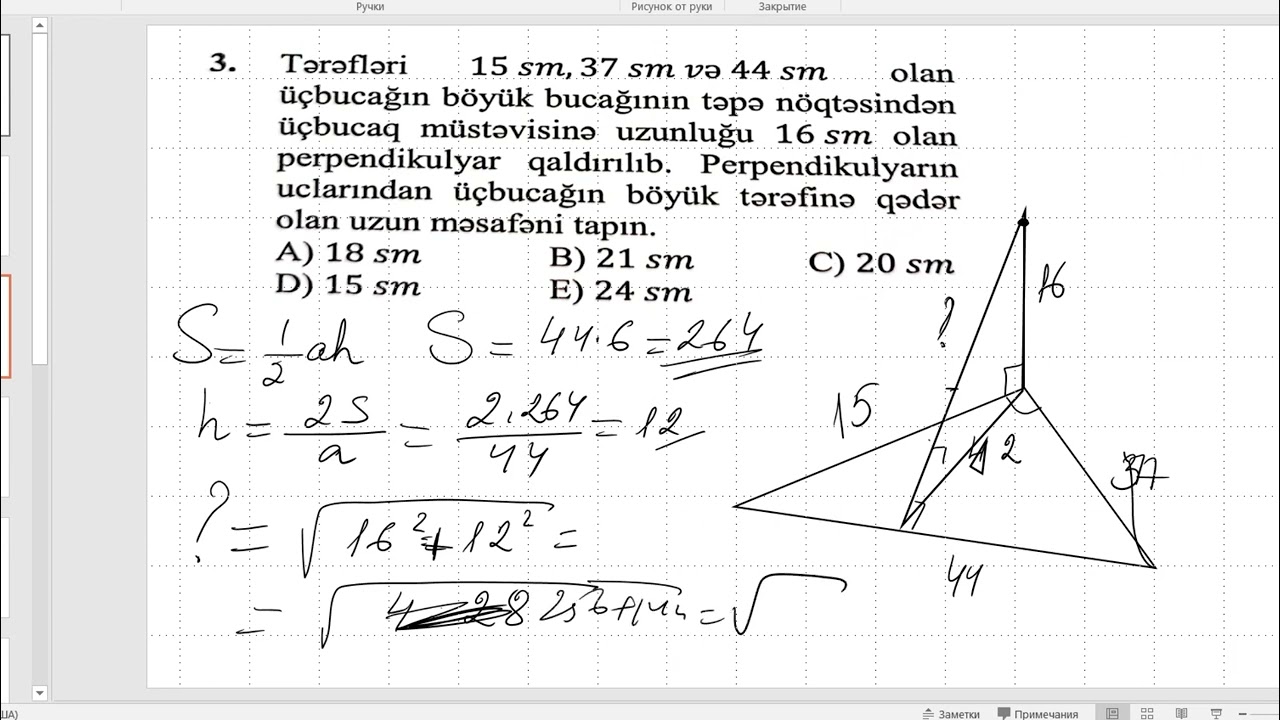 Ручки Рисунок от руки Закрытие
3. Tərəfləri 15 sm, 37 sm və 44 sm olan
üçbucağın böyük bucağının təpə nöqtəsindən
üçbucaq müstəvisinə uzunluğu 16 sm olan
perpendikulyar qaldırılıb. Perpendikulyarın
uclarından üçbucağın böyük tərəfinə qədər
olan uzun məsafəni tapın.
A) 18 sm B) 21 sm C) 20 sm
D) 15 sm E) 24 sm
16
?
S = 1/2 ah S = 44·6 = 264
15
h = 2S/a = 2·264/44 = 12
12
37
? = √16²+12² =
44
= √256+144 = √
США) Заметки Примечания